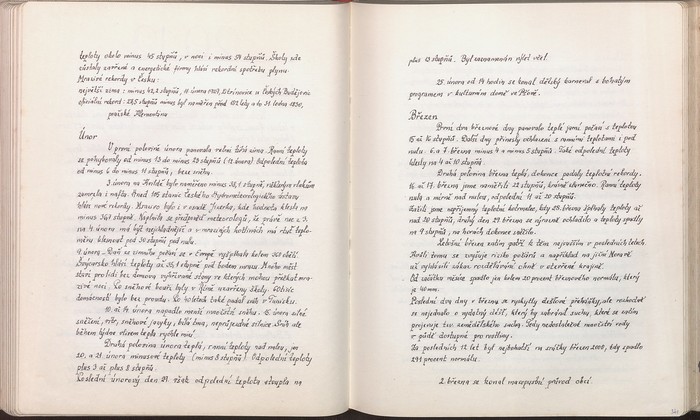 teploty okolo minus 45 stupňů, v noci i minus 54 stupňů. Školy zde
zůstaly zavřené a energetické firmy hlásí rekordní spotřebu plynu.
Mrazivé rekordy v Česku:
nejnižší zima: minus 42,2 stupňů, 11. února 1929, Litvínovice u Českých Budějovic
oficiální rekord: 27,5 stupňů minus byl naměřen před 182 lety a to 31. ledna 1830,
pražské Klementinum
Únor
V první polovině února panovala velmi tuhá zima. Ranní teploty
se pohybovaly od minus 13 do minus 23 stupňů (12. února). Odpolední teploty
od minus 6 do minus 11 stupňů, beze sněhu.
3. února na Kvildě bylo naměřeno minus 38,1 stupně,
zamrzla i nafta. Asi 145 stanic Českého Hydrometeorologického ústavu
hlásí nové rekordy. Mrazivo bylo i v osadě Jizerka, kde hodnota klesla na
minus 36,1 stupně. Naplnila se předpověď meteorologů, že právě noc z 3.
na 4. února má být nejchladnější a v mrazových kotlinách má rtuť teplo-
měru klesnout pod 30 stupňů pod nulu.
9. února: Daň se zimního počasí se v Evropě vyšplhala kolem 360 obětí.
Švýcarsko hlásí teploty až 35,1 stupně pod bodem mrazu. Mnoho měst
staví pro lidi bez domova vyhřívané stany ve kterých mohou přečkat mra-
zivé noci. Ke sněhové bouři byly v Římě uzavřeny školy. tisíc
domácností bylo bez proudu. Po 40 letech také padal sníh v Tunisku.
10. až 16. února napadlo menší množství sněhu. 15. února silné
sněžení, vítr, sněhové jazyky, bílá tma, neprůjezdné silnice. Sníh ale
během týdne vlivem tepla rychle mizí.
Druhá polovina února teplá, ranní teploty nad nulou, jen
20. a 21. února minusové teploty (minus 8 stupňů). Odpolední teploty
plus 3 až plus 8 stupňů.
Poslední únorový den 29. však odpolední teplota stoupla na
plus 13 stupňů. Byl zaznamenán výlet včel.
25. února od 14 hodin se konal dětský karneval s bohatým
programem v kulturním domě ve
Březen
První dva březnové dny panovalo teplé jarní počasí s teplotou
15 až 16 stupňů. Další dny přinesly ochlazení s ranními teplotami i pod
nulu. 6. a 7. března minus 4 a minus 5 stupňů. Také odpolední teploty
klesly na 4 až 10 stupňů.
Druhá polovina března teplá, dokonce padaly teplotní rekordy.
16. až 17. března jsme naměřili 22 stupňů, krásné sluníčko. Ranní teploty
nula a mírně nad nulou, odpolední 11 až 20 stupňů.
Zažili jsme nepříjemný teplotní kolotoč, kdy 28. března šplhaly teploty až
nad 20 stupňů, druhý den 29. března se výrazně ochladilo a teploty spadly
na 9 stupňů, na horách dokonce sněžilo.
Letošní březen zatím patří k těm nejsušším v posledních letech.
Kvůli tomu se zvyšuje riziko požárů a například na jižní Moravě
už vyhlásili zákaz rozdělávání ohně v otevřené krajině.
Od začátku měsíce spadlo jen kolem 20 procent březnového normálu, který
je 40 mm.
Poslední dny v březnu se vyskytly dešťové přeháňky, ale rozhodně
se nejednalo o vydatný déšť, který by zabránil suchu, které se zatím
projevuje tzv. zemědělského sucha. Tedy nedostatečné množství vody
v půdě dostupné pro rostliny.
Za posledních 12 let byl nejbohatší na srážky březen 2000, kdy spadlo
241 procent normálu.
2. března se konal masopustní průvod obcí.